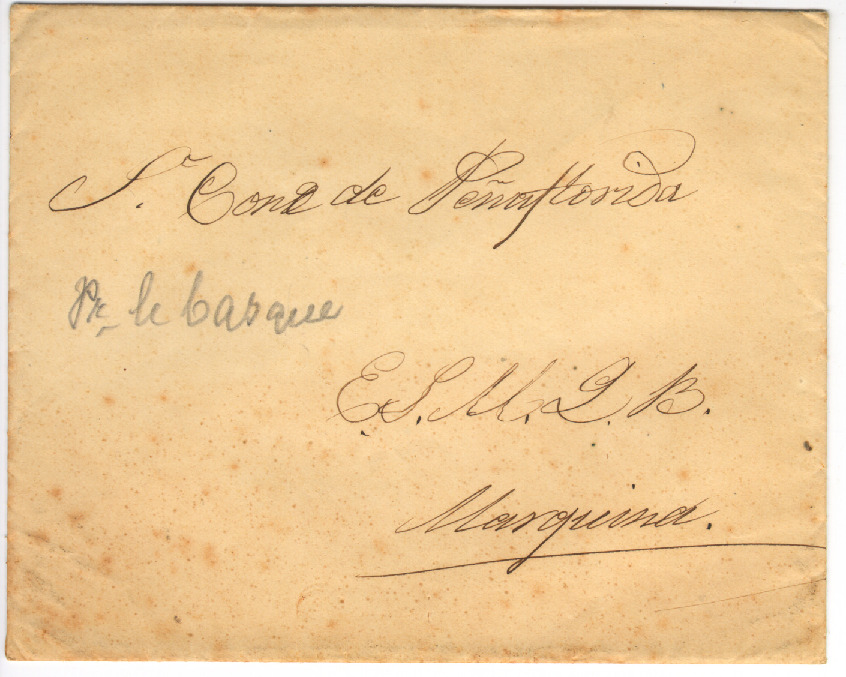 S.r Conde de Peñaflorida
Pr. le basque
E. S. M. Q. B.
Marquina.